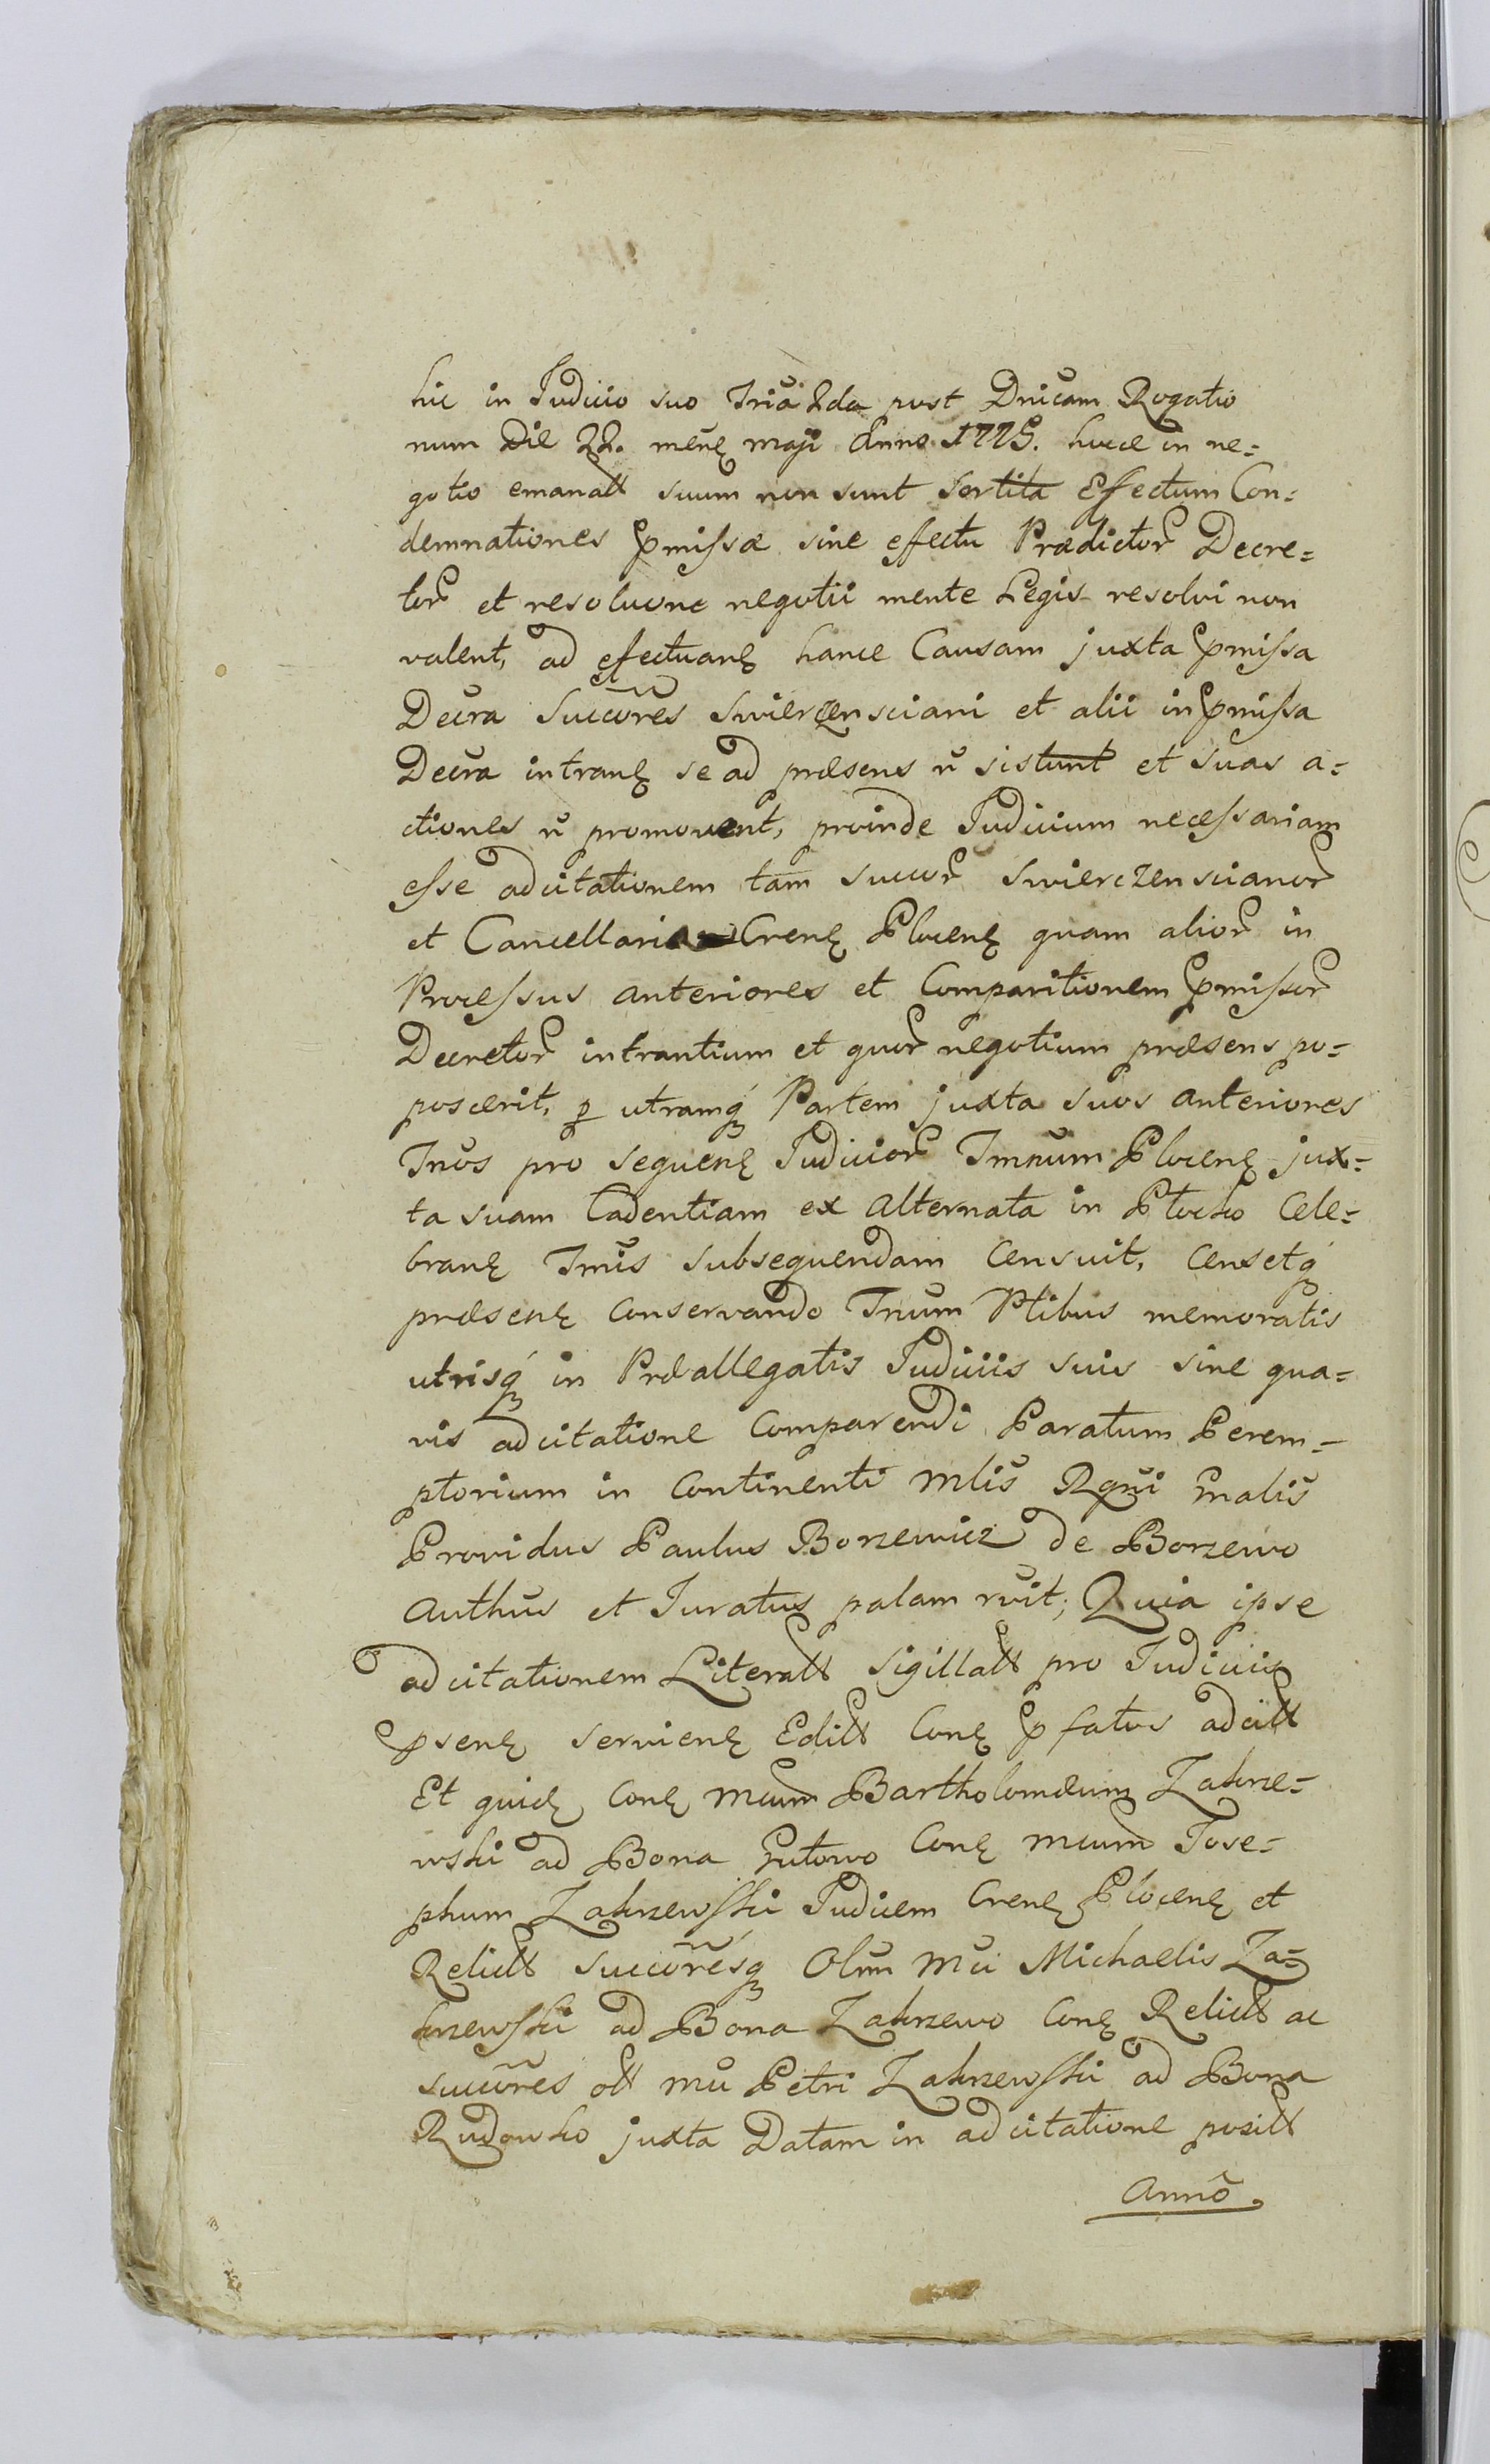 hic in Judicio suo Tria 2da post Dnicam Rogatio
num Die 22. mens maji Anno 1775. hocce in ne=
gotio emanatt suum non sunt sortita Effectum Con=
demnationes pmissæ sine effectu Prædictor Decre=
tor et resoluone negotii mente Legis resolvi non
valent, ad efectuanę hance Causam juxta pmissa
Decra Succores Swierczensciani et alii in pmissa
Decra intranę se ad præsens n sistunt et suas a=
ctiones n promovent, proinde Judicium necessariam
esse adcitationem tam succor Swierczenscianor
et Cancellariæ Crenę Plocenę quam alior in
Processus anteriores et Comparitionem pmissor
Decretor intrantium et quor negotium præsens po=
poscerit, p utramq Partem juxta suos anteriores
Tnos pro sequenę Judicior Tmnum Plocenę jux=
ta suam Cadentiam ex alternata in Plocko Cele=
branę Tmis subsequendam Censuit, Censetq
præsenę conservando Tnum Ptibus memoratis
utrisq in Præallegatis Judiciis suis sine qua=
vis adcitatione Comparendi Paratum Perem=
ptorium in Continenti Mlis Rgni gnalis
Providus Paulus Borzewicz de Borzewo
Authus et Juratus palam rvit; Quia ipse
adcitationem Literatt sigillatt pro Judiciis
psenę servienę Editt Conę pfatos adcitt
Et quidę Conę Mcum Bartholomæum Zakrze=
wski ad Bona Gutowo Conę Mcum Jose=
phum Zakrzewski Judicem Crenę Plocenę et
Relictt succoresq Olim Mci Michaelis Za=
krzewski ad Bona Zakrzewo Conę Relictt ac
succores olt Mci Petri Zakrzewski ad Bona
Rudowko juxta Datam in adcitatione positt
Anno.